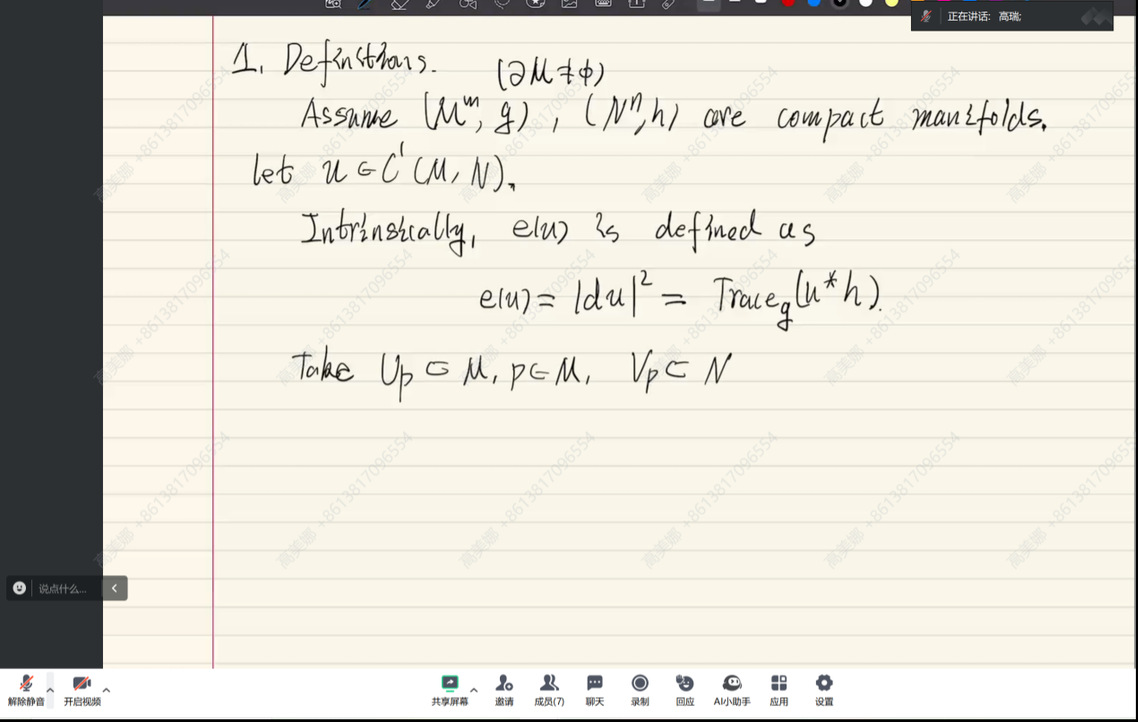 正在讲话: 高瑞;
1. Definitions.
(∂M≠∅)
Assume (Mᵐ, g), (Nⁿ, h) are compact manifolds.
let u ∈ C¹(M, N).
Intrinsically, e(u) is defined as
e(u) = |du|² = Trace_g(u*h).
Take U_p ⊂ M, p ∈ M, V_p ⊂ N
说点什么...
解除静音 开启视频 共享屏幕 邀请 成员(7) 聊天 录制 回应 AI小助手 应用 设置
高美娜 +8613817096554